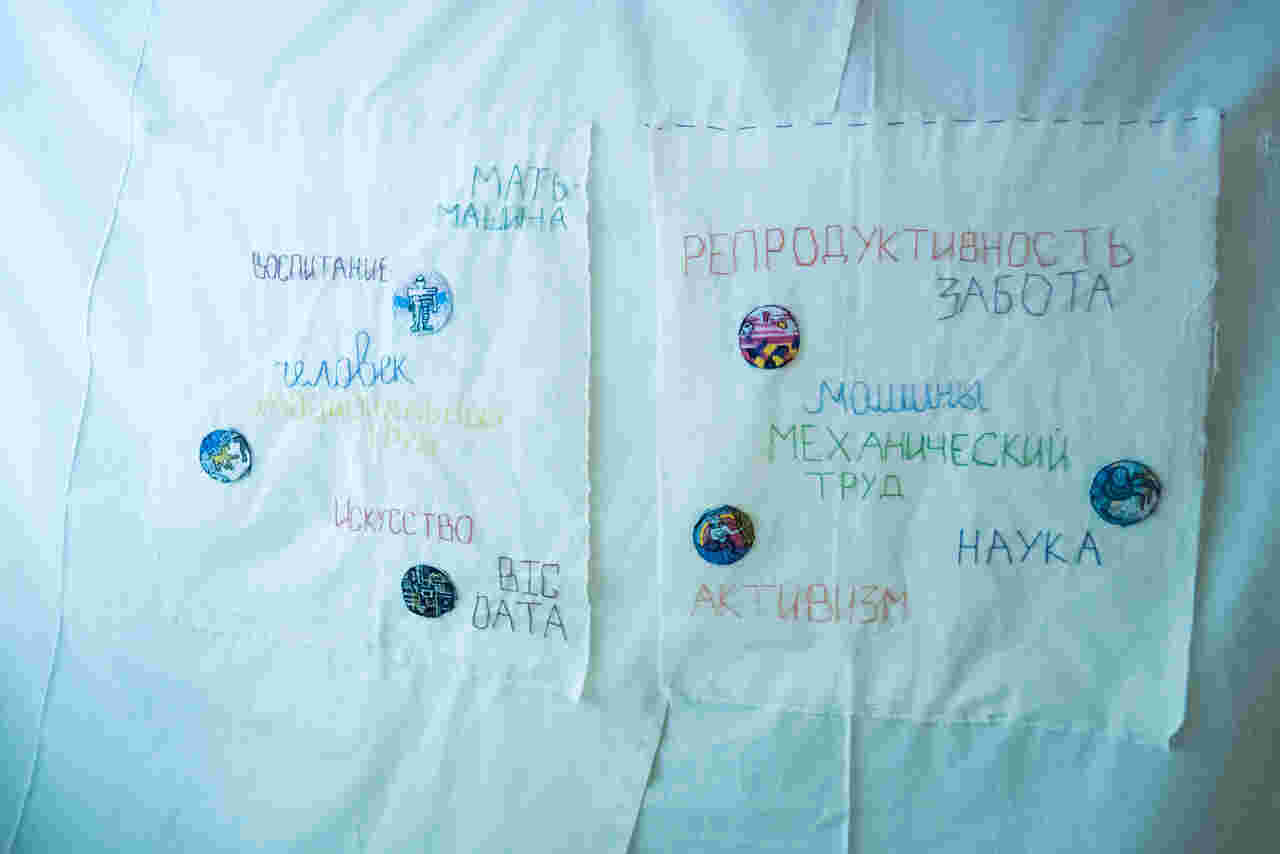 МАТЬ-
МАШИНА
ВОСПИТАНИЕ
человек
ТРУД
ИСКУССТВО
BIG
DATA
РЕПРОДУКТИВНОСТЬ
ЗАБОТА
машины
МЕХАНИЧЕСКИЙ
ТРУД
НАУКА
АКТИВИЗМ